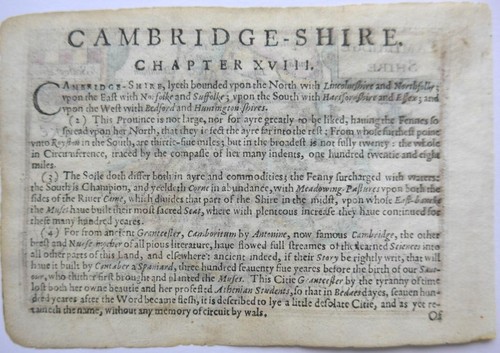 CAMBRIDGE-SHIRE.
CHAPTER XVIII.
CAMBRIDGE-SHIRE, lyeth bounded vpon the North with Lincolnshire and Northfolke;
vpon the East with Norfolke and Suffolke; vpon the South with Hartfordshire and Essex; and
vpon the West with Bedford and Huntington-shires.
(2) This Prouince is not large, nor for ayre greatly to be liked, hauing the Fennes so
spread vpon her North, that they infect the ayre far into the rest: From whose furthest point
vnto Royston in the South, are thirtie-fiue miles; but in the broadest is not fully twenty: the whole
in Circumference, traced by the compasse of her many indents, one hundred twentie and eight
miles.
(3) The Soile doth differ both in ayre and commodities; the Fenny surcharged with waters:
the South is Champion, and yeeldeth Corne in abundance, with Meadowing-Pastures vpon both the
sides of the Riuer Came, which diuides that part of the Shire in the midst, vpon whose East-banke
the Muses haue built their most sacred Seat, where with plenteous increase they haue continued for
these many hundred yeares.
(4) For from ancient Grantcester, Camboritum by Antonine, now famous Cambridge, the other
brest and Nurse-mother of all pious literature, haue flowed full streames of the learned Sciences into
all other parts of this land, and elsewhere: ancient indeed, if their Story be rightly writ, that will
haue it built by Cantaber a Spaniard, three hundred seauenty fiue yeares before the birth of our Sau-
our, who thither first brought and planted the Muses. This Citie Grantcester by the tyranny of time
lost both her owne beautie and her professed Athenian Students, so that in Bedaes dayes, seauen hun-
dred yeares after the Word became flesh, it is described to lye a little desolate Citie, and as yet re-
taineth the name, without any memory of circuit by wals.
Of